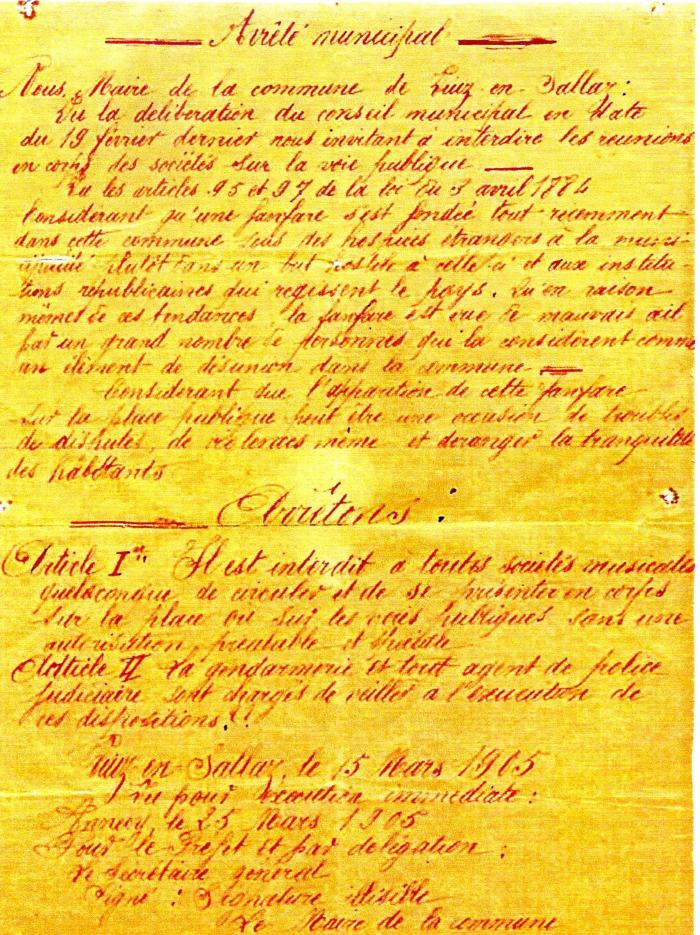 Arrêté municipal
Nous, Maire de la commune de Viuz-en-Sallaz:
Vu la déliberation du conseil municipal en date
du 19 février dernier nous invitant à interdire les reunions
en corps des sociétés sur la voie publique
Vu les articles 95 et 97 de la loi du 3 avril 1884
Considerant qu'une fanfare s'est fondée tout recemment
dans cette commune sous des hospices etrangers à la muni-
cipalité plutôt dans un but hostile à celle-ci et aux institu-
tions républicaines qui regissent le pays. Qu'en raison
même de ces tendances la fanfare est vue de mauvais œil
par un grand nombre de personnes qui la considèrent comme
un élément de désunion dans la commune
Considerant que l'apparition de cette fanfare
sur la place publique peut être une occasion de troubles
de disputes, de violences même et deranger la tranquilité
des habitants
:
Article Ier Il est interdit à toutes sociétés musicales
quelsconque de circuler et de se présenter en corps
sur la place ou sur les voies publiques sans une
autorisation, préalable et
Article II La gendarmerie et tout agent de police
judiciaire sont chargés de veiller a l'execution de
ces dispositions.
Viuz-en-Sallaz, le 15 Mars 1905
Vu pour execution immediate:
Annecy, le 25 Mars 1905
Pour le Prefet et par delégation:
Le secrétaire général
Signé: Signature illisible
Le Maire de la commune